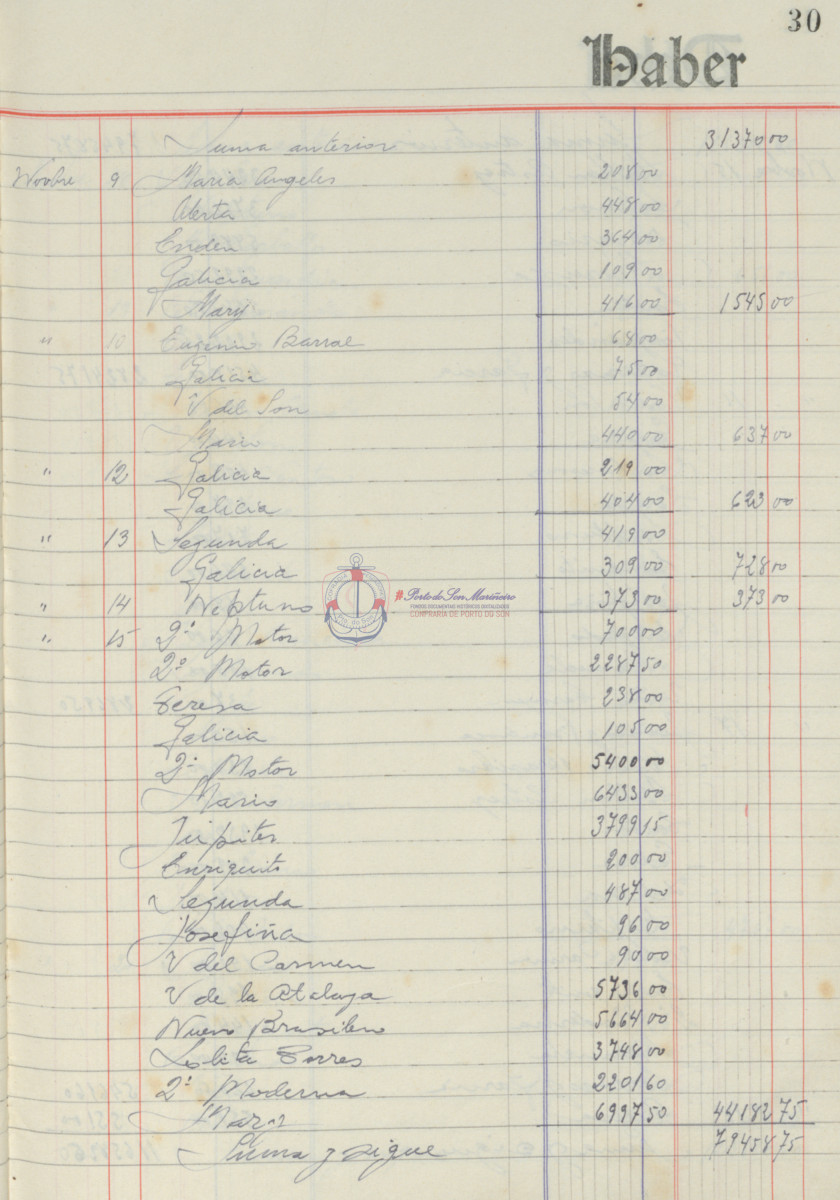 30
Haber
Suma anterior 31370 00
Novbre 9 Maria Angeles 208 00
Alerta 448 00
364 00
Galicia 109 00
Mary 416 00 1545 00
" 10 Eugenio Barral 68 00
Galicia 75 00
V del Son 54 00
Mario 440 00 637 00
" 12 Galicia 219 00
Galicia 404 00 623 00
" 13 Segunda 419 00
Galicia 309 00 728 00
" 14 Neptuno 373 00 373 00
" 15 2º Motor 700 00
2º Motor 2287 50
Teresa 238 00
Galicia 105 00
2º Motor 5400 00
Mario 6433 00
Jupiter 3799 15
Enriquito 200 00
Segunda 487 00
Josefiña 96 00
V del Carmen 90 00
V de la Atalaya 5736 00
Nuevo Brasileno 5664 00
Lolita Torres 3748 00
2ª Moderna 2201 60
Mary 6997 50 44182 75
Suma y sigue 79458 75
#Porto do Son Mariñeiro
FONDOS DOCUMENTAIS HISTÓRICOS DIXITALIZADOS
CONFRARÍA DE PORTO DO SON